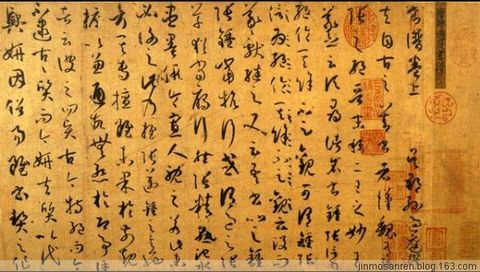 書譜卷上 吳郡孫過庭撰
夫自古之善書者漢魏有鍾
張之絕晉末稱二王之妙
王羲之云頃尋諸名書鍾張信
為絕倫其餘不足觀可謂鍾張
云沒而羲獻繼之又云吾書比之
鍾張鍾當抗行或謂過之張
草猶當雁行然張精熟池水
盡墨假令寡人耽之若此未
必謝之此乃推張邁鍾之意
也考其專擅雖未果於前規
摭以兼通故無慚於即事
評者云彼之四賢古今特絕而今
不逮古古質而今妍夫質以代
興妍因俗易雖書契之作
jinmosanren@blog.163.com